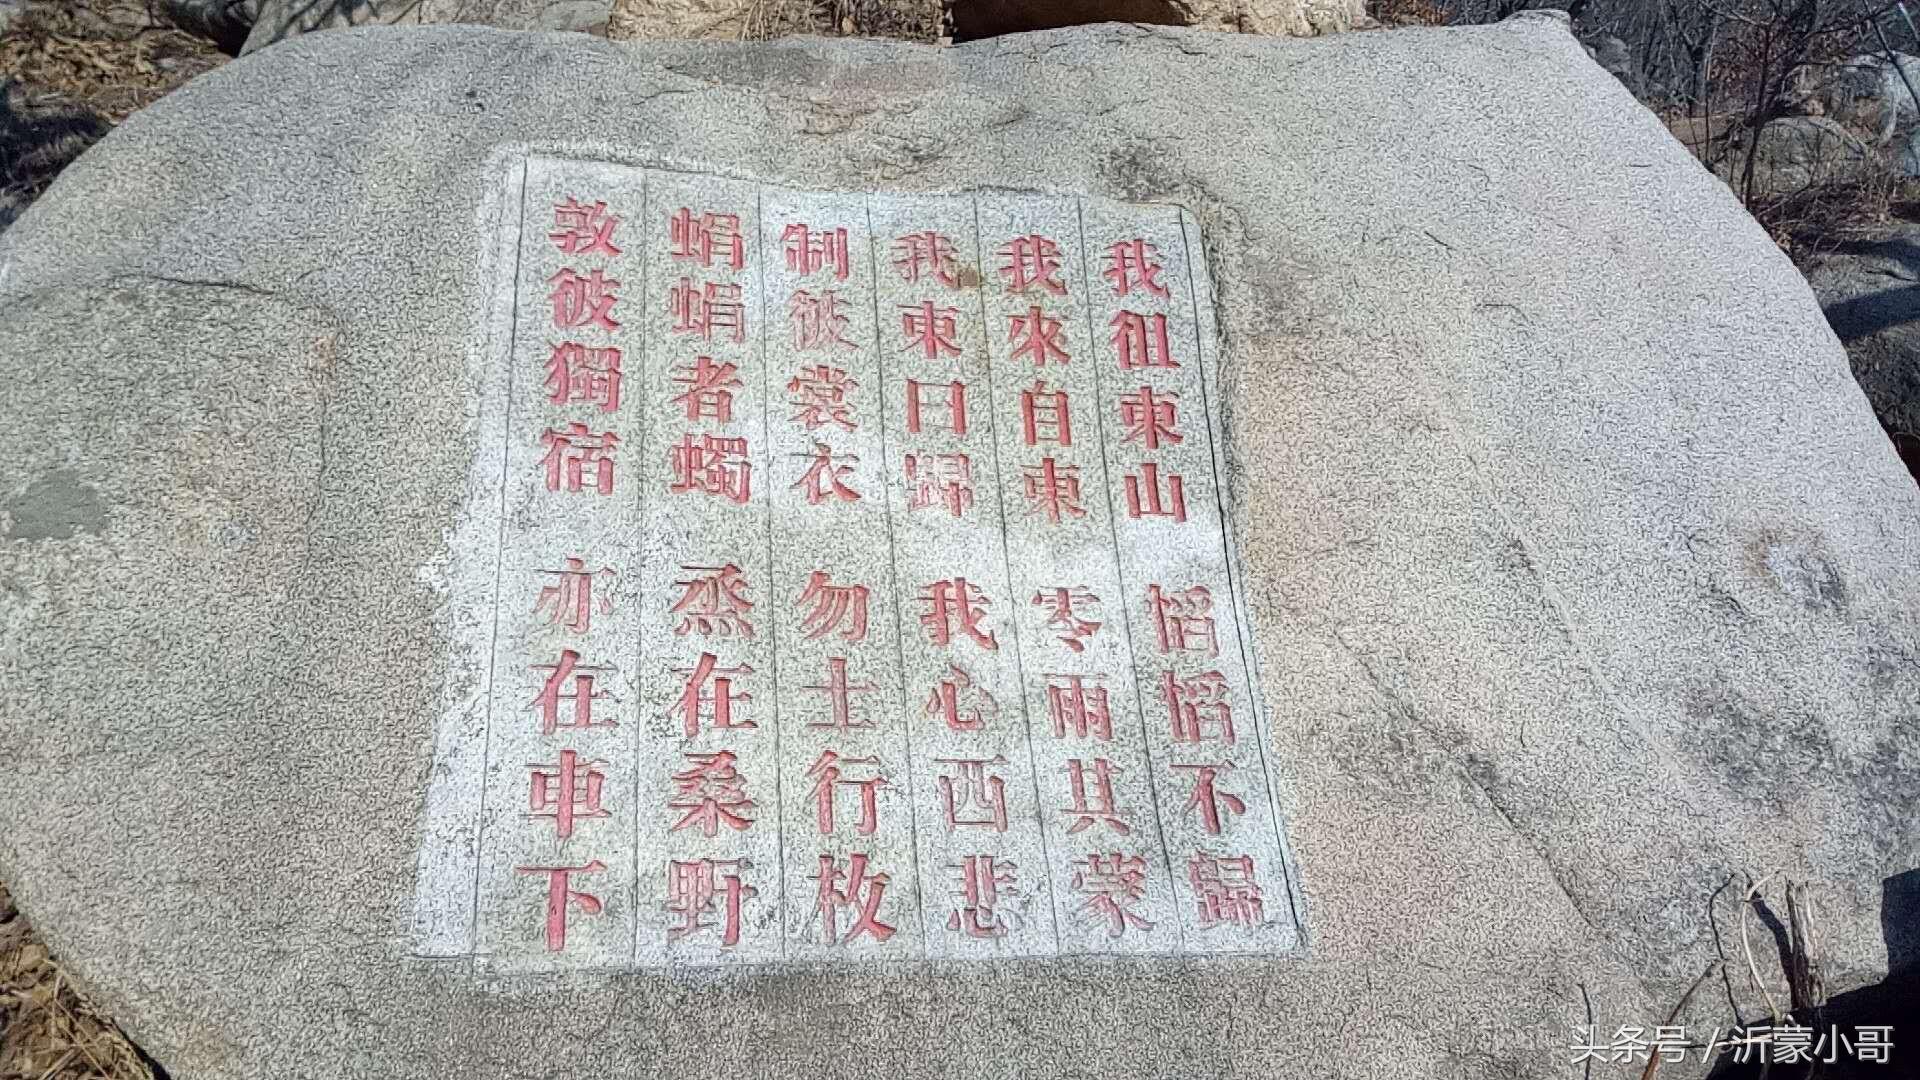 我徂東山 慆慆不歸
我來自東 零雨其蒙
我東曰歸 我心西悲
制彼裳衣 勿士行枚
蜎蜎者蠋 烝在桑野
敦彼獨宿 亦在車下
头条号 / 沂蒙小哥